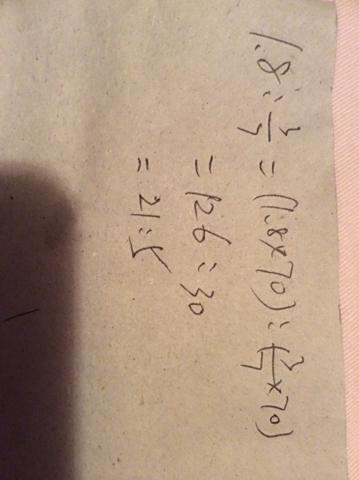 1.8:3/7=(1.8×70):(3/7×70)
=126:30
=21:5